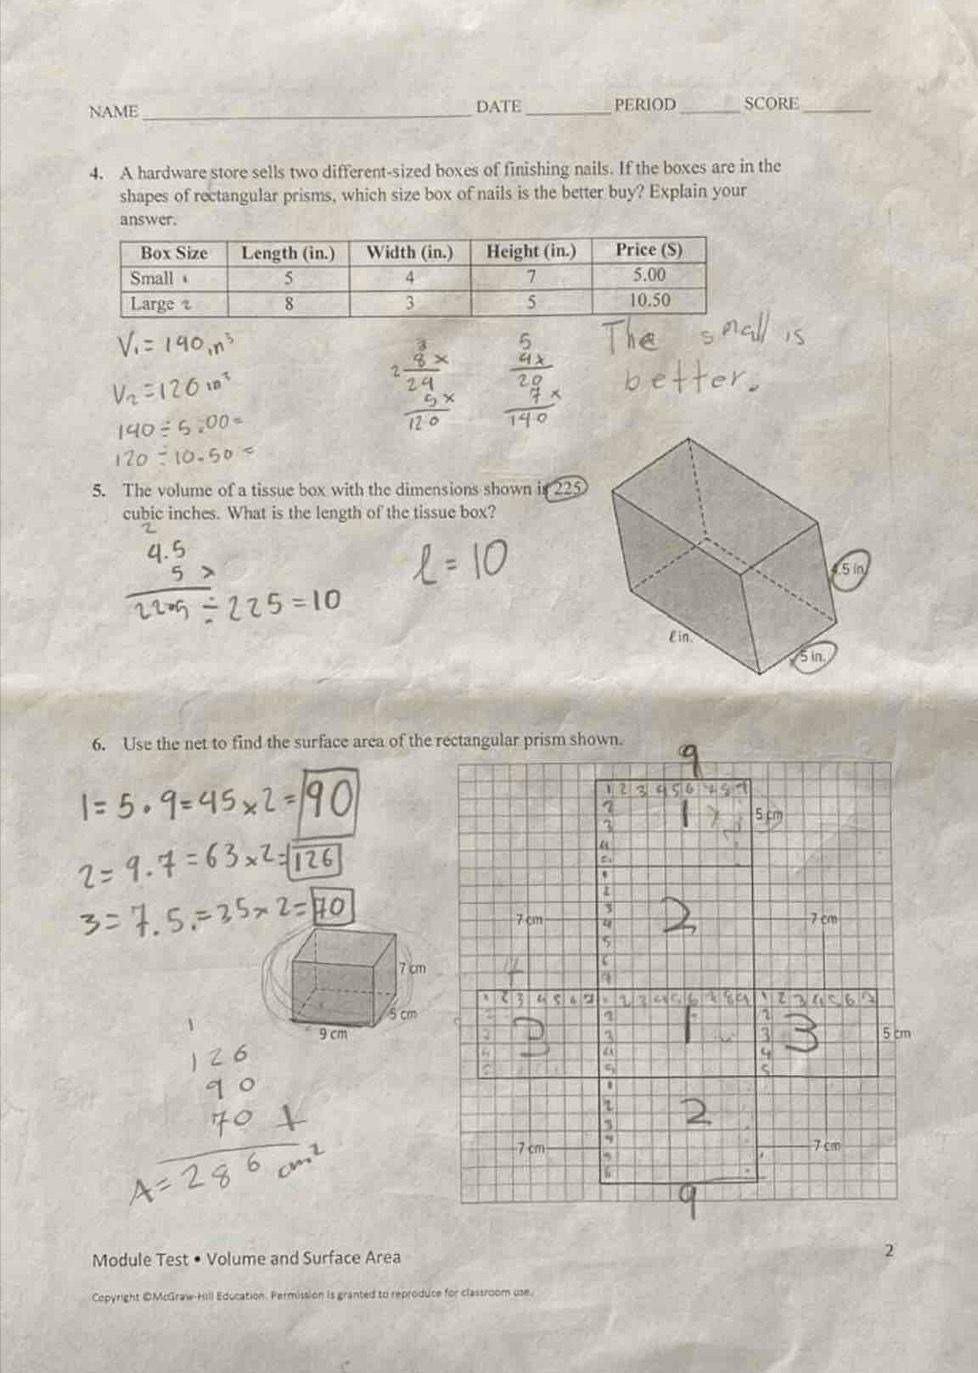 NAME DATE PERIOD SCORE
4. A hardware store sells two different-sized boxes of finishing nails. If the boxes are in the
shapes of rectangular prisms, which size box of nails is the better buy? Explain your
answer.
Box Size Length (in.) Width (in.) Height (in.) Price ($)
Small 1 5 4 7 5.00
Large 2 8 3 5 10.50
V₁ = 140 in³
V₂ = 120 in³
140 ÷ 5.00 =
120 ÷ 10.50 =
3
8 x
2
24
5 x
120
5
4 x
20
7 x
140
The small is
better.
5. The volume of a tissue box with the dimensions shown is 225
cubic inches. What is the length of the tissue box?
2
4.5
5 x
22.5 ÷ 225 = 10
l = 10
4.5 in.
ℓ in.
5 in.
6. Use the net to find the surface area of the rectangular prism shown.
1 = 5 . 9 = 45 x 2 = 90
2 = 9 . 7 = 63 x 2 = 126
3 = 7 . 5 . = 35 x 2 = 70
7 cm
5 cm
9 cm
1
126
90
70 +
A = 286 cm²
9
1 2 3 4 5 6 7 8 9
1
5 cm
2
7 cm
7 cm
1 2 3 4 5 6 7
1 2 3 4 5 6 7 8 9
1 2 3 4 5 6 7
3
1
3
5 cm
2
7 cm
7 cm
9
Module Test • Volume and Surface Area
2
Copyright ©McGraw-Hill Education. Permission is granted to reproduce for classroom use.